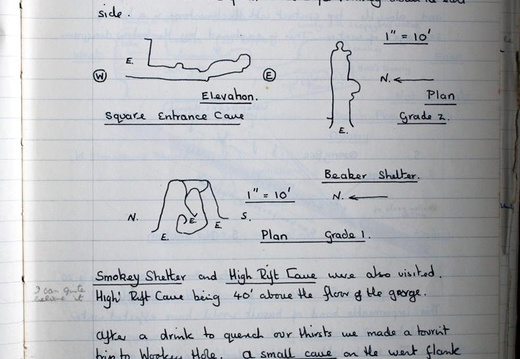 side.
1" = 10'
E.
W
E
N.
Elevation.
Plan
Square Entrance Cave
Grade 2.
E.
Beaker Shelter.
1" = 10'
N.
N.
S.
E.
E.
E.
Plan Grade 1.
Smokey Shelter and High Rift Cave were also visited.
I can quite
believe it
High Rift Cave being 40' above the floor of the gorge.
After a drink to quench our thirsts we made a tourist
trip to Wookey Hole. A small cave on the west flank